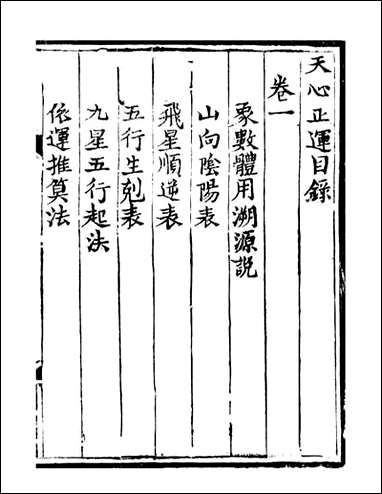 天心正運目錄
卷一
象數體用溯源說
山向陰陽表
飛星順逆表
五行生剋表
九星五行起法
依運推算法